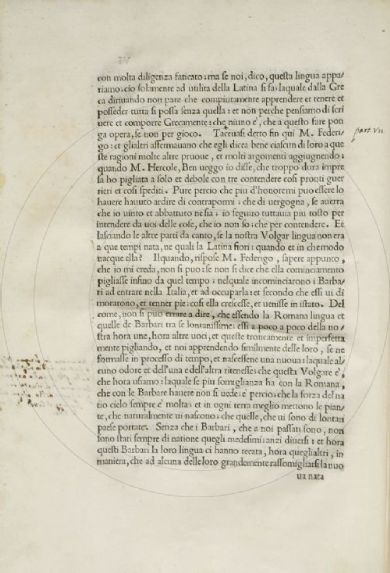 con molta diligenza faticato: ma se noi, dico, questa lingua appa/
riamo; cio solamente ad utilita della Latina si fa: laquale dalla Gre
ca dirivando non pare che compiutamente apprendere et tenere et
posseder tutta si possa senza quella: et non perche pensiamo di scri
vere et comporre Grecamente: che niuno e', che a questo fare pon
ga opera, se non per gioco. Taceuasi detto fin qui M. Federi-
go: et glialtri affermauano che egli dicea bene ciascun di loro a que
ste ragioni molte altre pruoue, et molti argomenti aggiugnendo:
quando M. Hercole, Ben ueggo io disse, che troppo dura impre
sa ho pigliata a solo et debole con tre contendere cosi pronti guer
rieri et cosi spediti. Pure percio che piu d'honoremi puo essere lo
hauere hauuto ardire di contrapormi; che di uergogna, se auerra
che io uinto et abbattuto ne sia; io seguiro tuttauia piu tosto per
intendere da uoi delle cose, che io non so; che per contendere. Et
lasciando le altre parti da canto, se la nostra Volgar lingua non era
a que tempi nata, ne quali la Latina fiori; quando et in che modo
nacque ella? Ilquando, rispose M. Federigo, sapere appunto,
che io mi creda, non si puo; se non si dice che ella cominciamento
pigliasse infino da quel tempo; nelquale incominciarono i Barba/
ri ad entrare nella Italia, et ad occuparla: et secondo che essi ui di
morarono, et tenner pie; cosi ella crescesse, et uenisse in istato. Del
come, non si puo errare a dire, che essendo la Romana lingua et
quelle de Barbari tra se lontanissime; essi a poco a poco della no/
stra hora une, hora altre uoci, et queste troncamente et imperfetta
mente pigliando, et noi apprendendo similmente delle loro, se ne
formasse in processo di tempo, et nascessene una nuoua; laquale al/
cuno odore et dell'una et dell'altra ritenesse; che questa Volgare e',
che hora usiamo: laquale se piu somiglianza ha con la Romana,
che con le Barbare hauere non si uede; e' percio; che la forza del na
tio cielo sempre e' molta: et in ogni terra meglio mettono le pian/
te, che naturalmente ui nascono; che quelle, che ui sono di lontan
paese portate. Senza che i Barbari, che a noi passati sono, non
sono stati sempre di natione quegli medesimi; anzi diuersi: et hora
questi Barbari la loro lingua ci hanno recata, hora queglialtri, in
maniera, che ad alcuna delle loro grandemente rassomigliarsi la nuo
ua nata